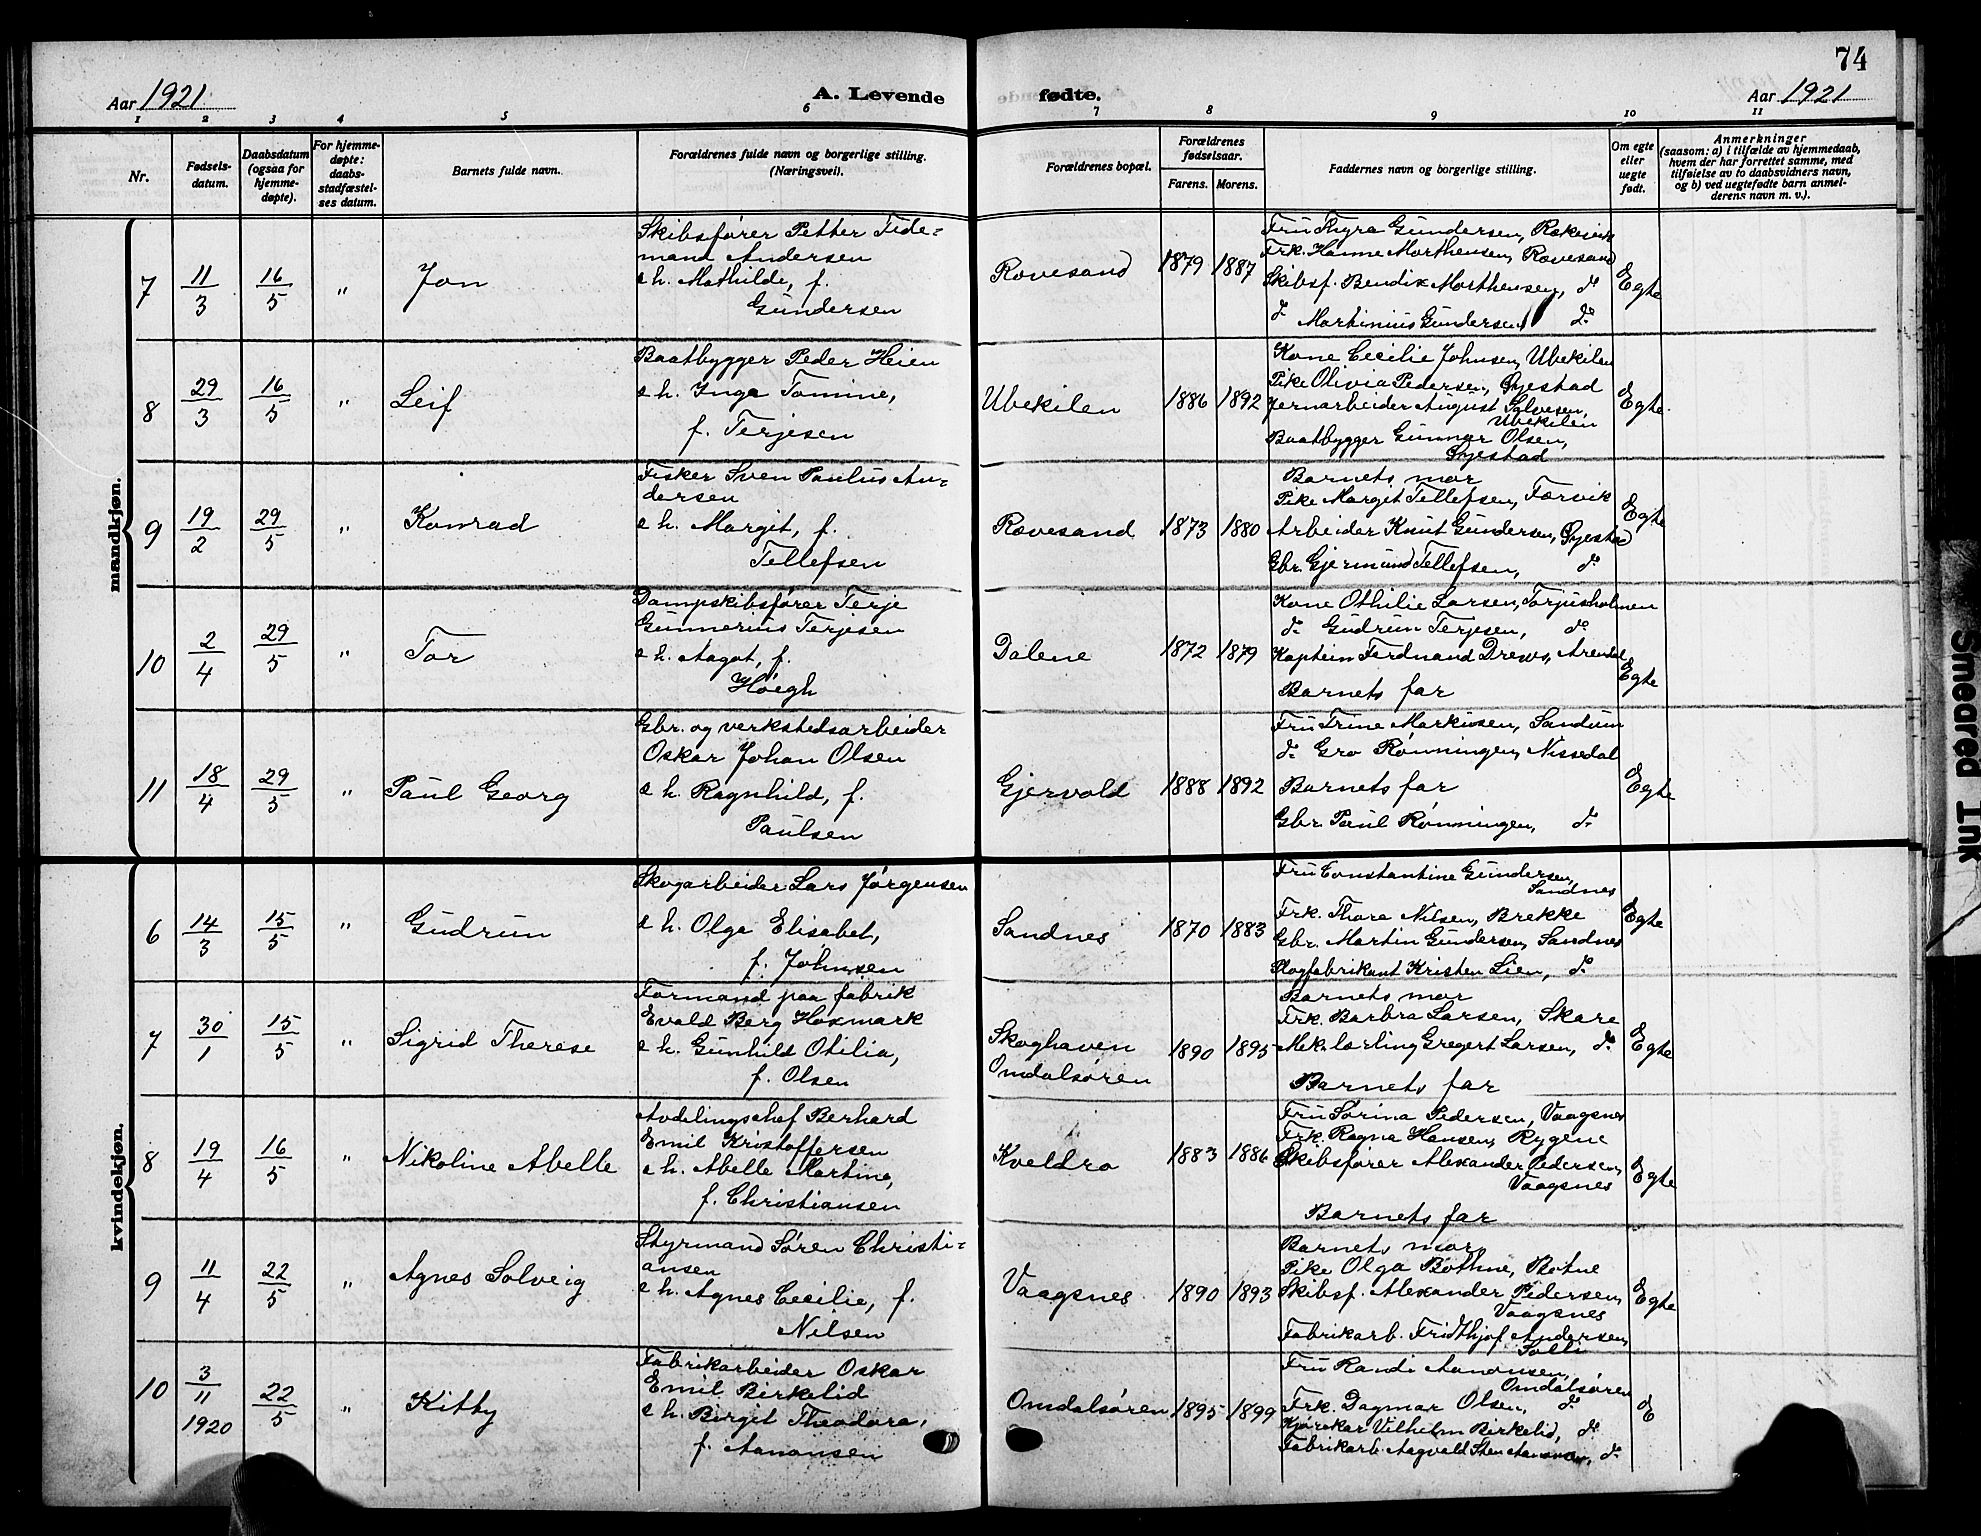 74
Aar 1921.
A. Levende
fødte.
Aar 1921
1 2 3 4 5 6 7 8 9 10 11
Nr.
Fødsels-
datum.
Daabsdatum
(ogsaa for
hjemme-
døpte).
For hjemme-
døpte:
daabs-
stadfæstel-
ses datum.
Barnets fulde navn.
Forældrenes fulde navn og borgerlige stilling.
(Næringsvei).
Forældrenes bopæl.
Forældrenes
fødselsaar.
Farens. Morens.
Faddernes navn og borgerlige stilling.
Om egte
eller
uegte
født.
Anmerkninger
(saasom: a) i tilfælde av hjemmedaab,
hvem der har forrettet samme, med
tilføielse av to daabsvidners navn,
og b) ved uegtefødte barn anmel-
derens navn m. v.).
mandkjøn.
7
11/3
16/5
"
Jon
Skibsfører Petter Tide=
mand Andersen
e h. Mathilde, f.
Gundersen
Rævesand
1879 1887
Fru Thyra Gundersen, Rækevik
Frk. Hanne Morthensen, Rævesand
Skibsf. Bendix Morthensen, do
do Martinius Gundersen do
Egte
8
29/3
16/5
"
Leif
Baatbygger Peder Heien
e h. Inga Tomine,
f. Terjesen
Ubekilen
1886 1892
Kone Cecilie Johnsen, Ubekilen
Pike Olivia Pedersen, Øyestad
Jernarbeider August Salvesen,
Ubekilen
Baatbygger Gunnar Olsen,
Øyestad
Egte
9
19/2
29/5
"
Konrad
Fisker Sven Paulus An=
dersen
e h. Margit, f.
Tellefsen
Rævesand
1873 1880
Barnets mor
Pike Margit Tellefsen, Færvik
Arbeider Knut Gundersen, Øyestad
Gbr. Gjermund Tellefsen, do
Egte
10
2/4
29/5
"
Tor
Dampskibsfører Terje
Gunnerius Terjesen
e h. Aagot, f.
Høegh
Dalene
1872 1879
Kone Othilie Larsen, Torjusholmen
do Gudrun Terjesen, do
Kaptein Ferdnand Drews, Arendal
Barnets far
Egte
11
18/4
29/5
"
Paul Georg
Gbr. og verkstedsarbeider
Oskar Johan Olsen
e h. Ragnhild, f.
Paulsen
Gjervold
1888 1892
Fru Trine Markusen, Sandum
do Gro Rønningen, Nissedal
Barnets far
Gbr. Paul Rønningen, do
Egte
kvindekjøn.
6
14/3
15/5
"
Gudrun
Skogarbeider Lars Jørgensen
e h. Olga Elisabet,
f. Johnsen
Sandnes
1870 1883
Fru Constantine Gundersen,
Sandnes
Frk. Thora Nilsen, Brekke
Gbr. Martin Gundersen, Sandnes
Plogfabrikant Kristen Lien, do
Egte
7
30/1
15/5
"
Sigrid Therese
Formand paa fabrik
Evald Berg Hoxmark
e h. Gunhild Otilia,
f. Olsen
Skoghaven
Omdalsøren
1890 1895
Barnets mor
Frk. Barbra Larsen, Skare
Mek. lærling Gregert Larsen, do
Barnets far
Egte
8
19/4
16/5
"
Nikoline Abelle
Avdelingschef Berhard
Emil Kristoffersen
e h. Abelle Martine,
f. Christiansen
Kveldro
1883 1886
Fru Sorina Pedersen, Vaagsnes
Frk. Ragna Hansen, Rygene
Skibsfører Alexander Pedersen,
Vaagsnes
Barnets far
Egte
9
11/4
22/5
"
Agnes Solveig
Styrmand Søren Christi=
ansen
e h. Agnes Cecilie, f.
Nilsen
Vaagsnes
1890 1893
Barnets mor
Pike Olga Bøthne, Botne
Skibsf. Alexander Pedersen,
Vaagsnes
Fabrikarb. Fridthjof Andersen,
Solli
Egte
10
3/11
1920
22/5
"
Kitty
Fabrikarbeider Oskar
Emil Birkelid
e h. Birgit Theodora,
f. Aanonsen
Omdalsøren
1895 1899
Fru Randi Aanonsen,
Omdalsøren
Frk. Dagmar Olsen, do
Kjørekar Vilhelm Birkelid, do
Fabrikarb. Aagvald Aanonsen, do
E
Smeared Ink